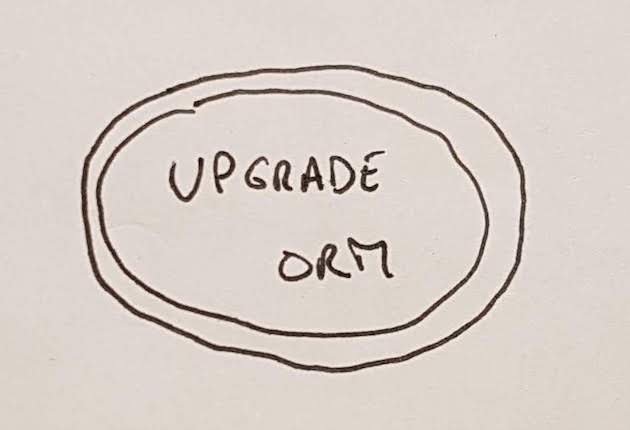 UPGRADE
ORM